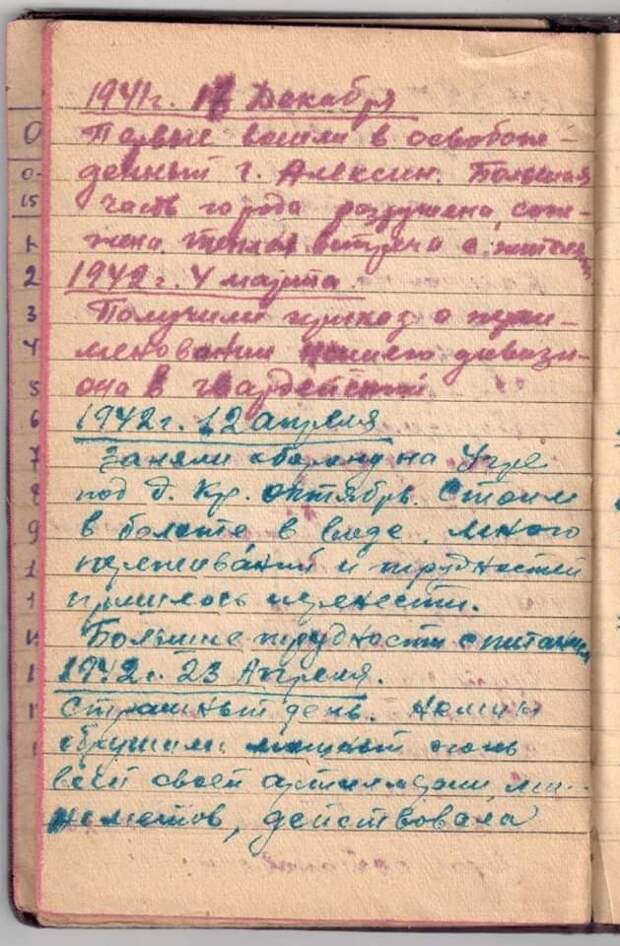 1941г. 17 Декабря
Первые вошли в освобож-
денный г. Алексин. Большая
часть города разрушена, сож-
жена. теплая встреча с жителям
1942 г. 4 марта
Получили приказ о пере-
именовании нашего дивизи-
она в гвардейский
1942г. 12 апреля
Заняли оборону на Угре
под д. Кр. октябрь. Стоим
в болоте в воде. Много
переживаний и трудностей
пришлось перенести.
Большие трудности с питанием
1942г. 23 Апреля.
Страшный день. Немцы
обрушили мощный огонь
всей своей артиллерии, ми-
нометов, действовала
0
0
15
1
2
3
4
5
6
7
8
9
1
1
1
1
1